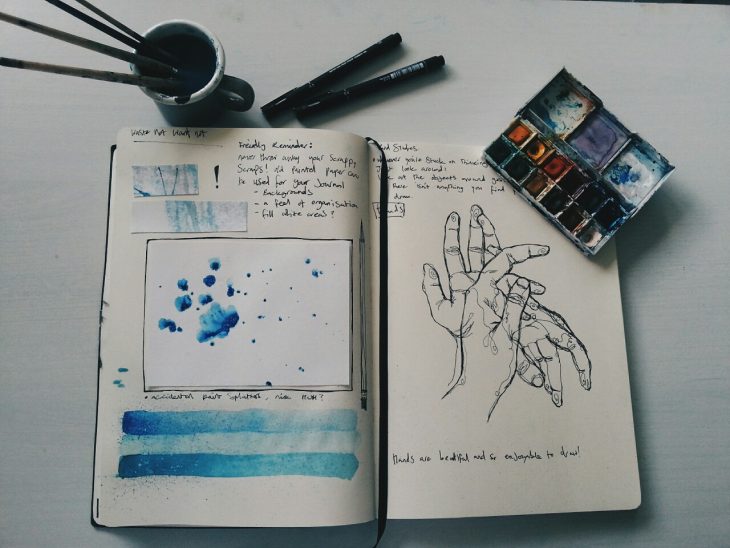 Waste not Want not
Friendly Reminder:
never throw away your scrappy
scraps! old painted paper can
be used for your Journal
- Backgrounds
- a feel of organisation
- fill white areas?
• accidental paint splatters, nice huh?
Studies
stuck on
Just look around!
at the objects around you
there isn't anything you find
draw.
Hands
Hands are beautiful and so enjoyable to draw!